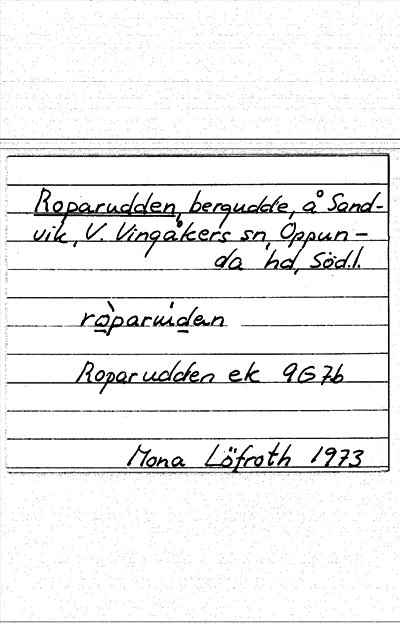 Roparudden, bergudde, å Sand-
vik, V. Vingåkers sn, Oppun-
da hd, Södl.
Roparudden ek 9G7b
Mona Löfroth 1973